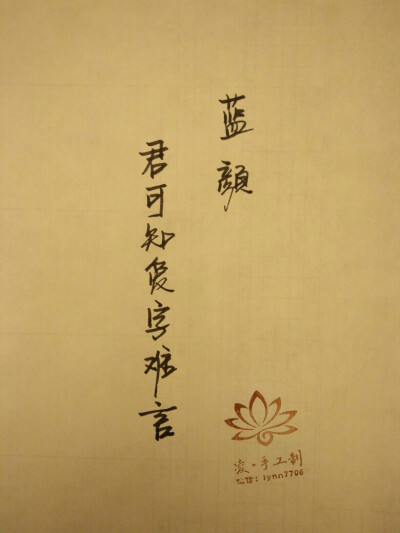 蓝顏
君可知爱字难言
手工制
微信: lynn7706